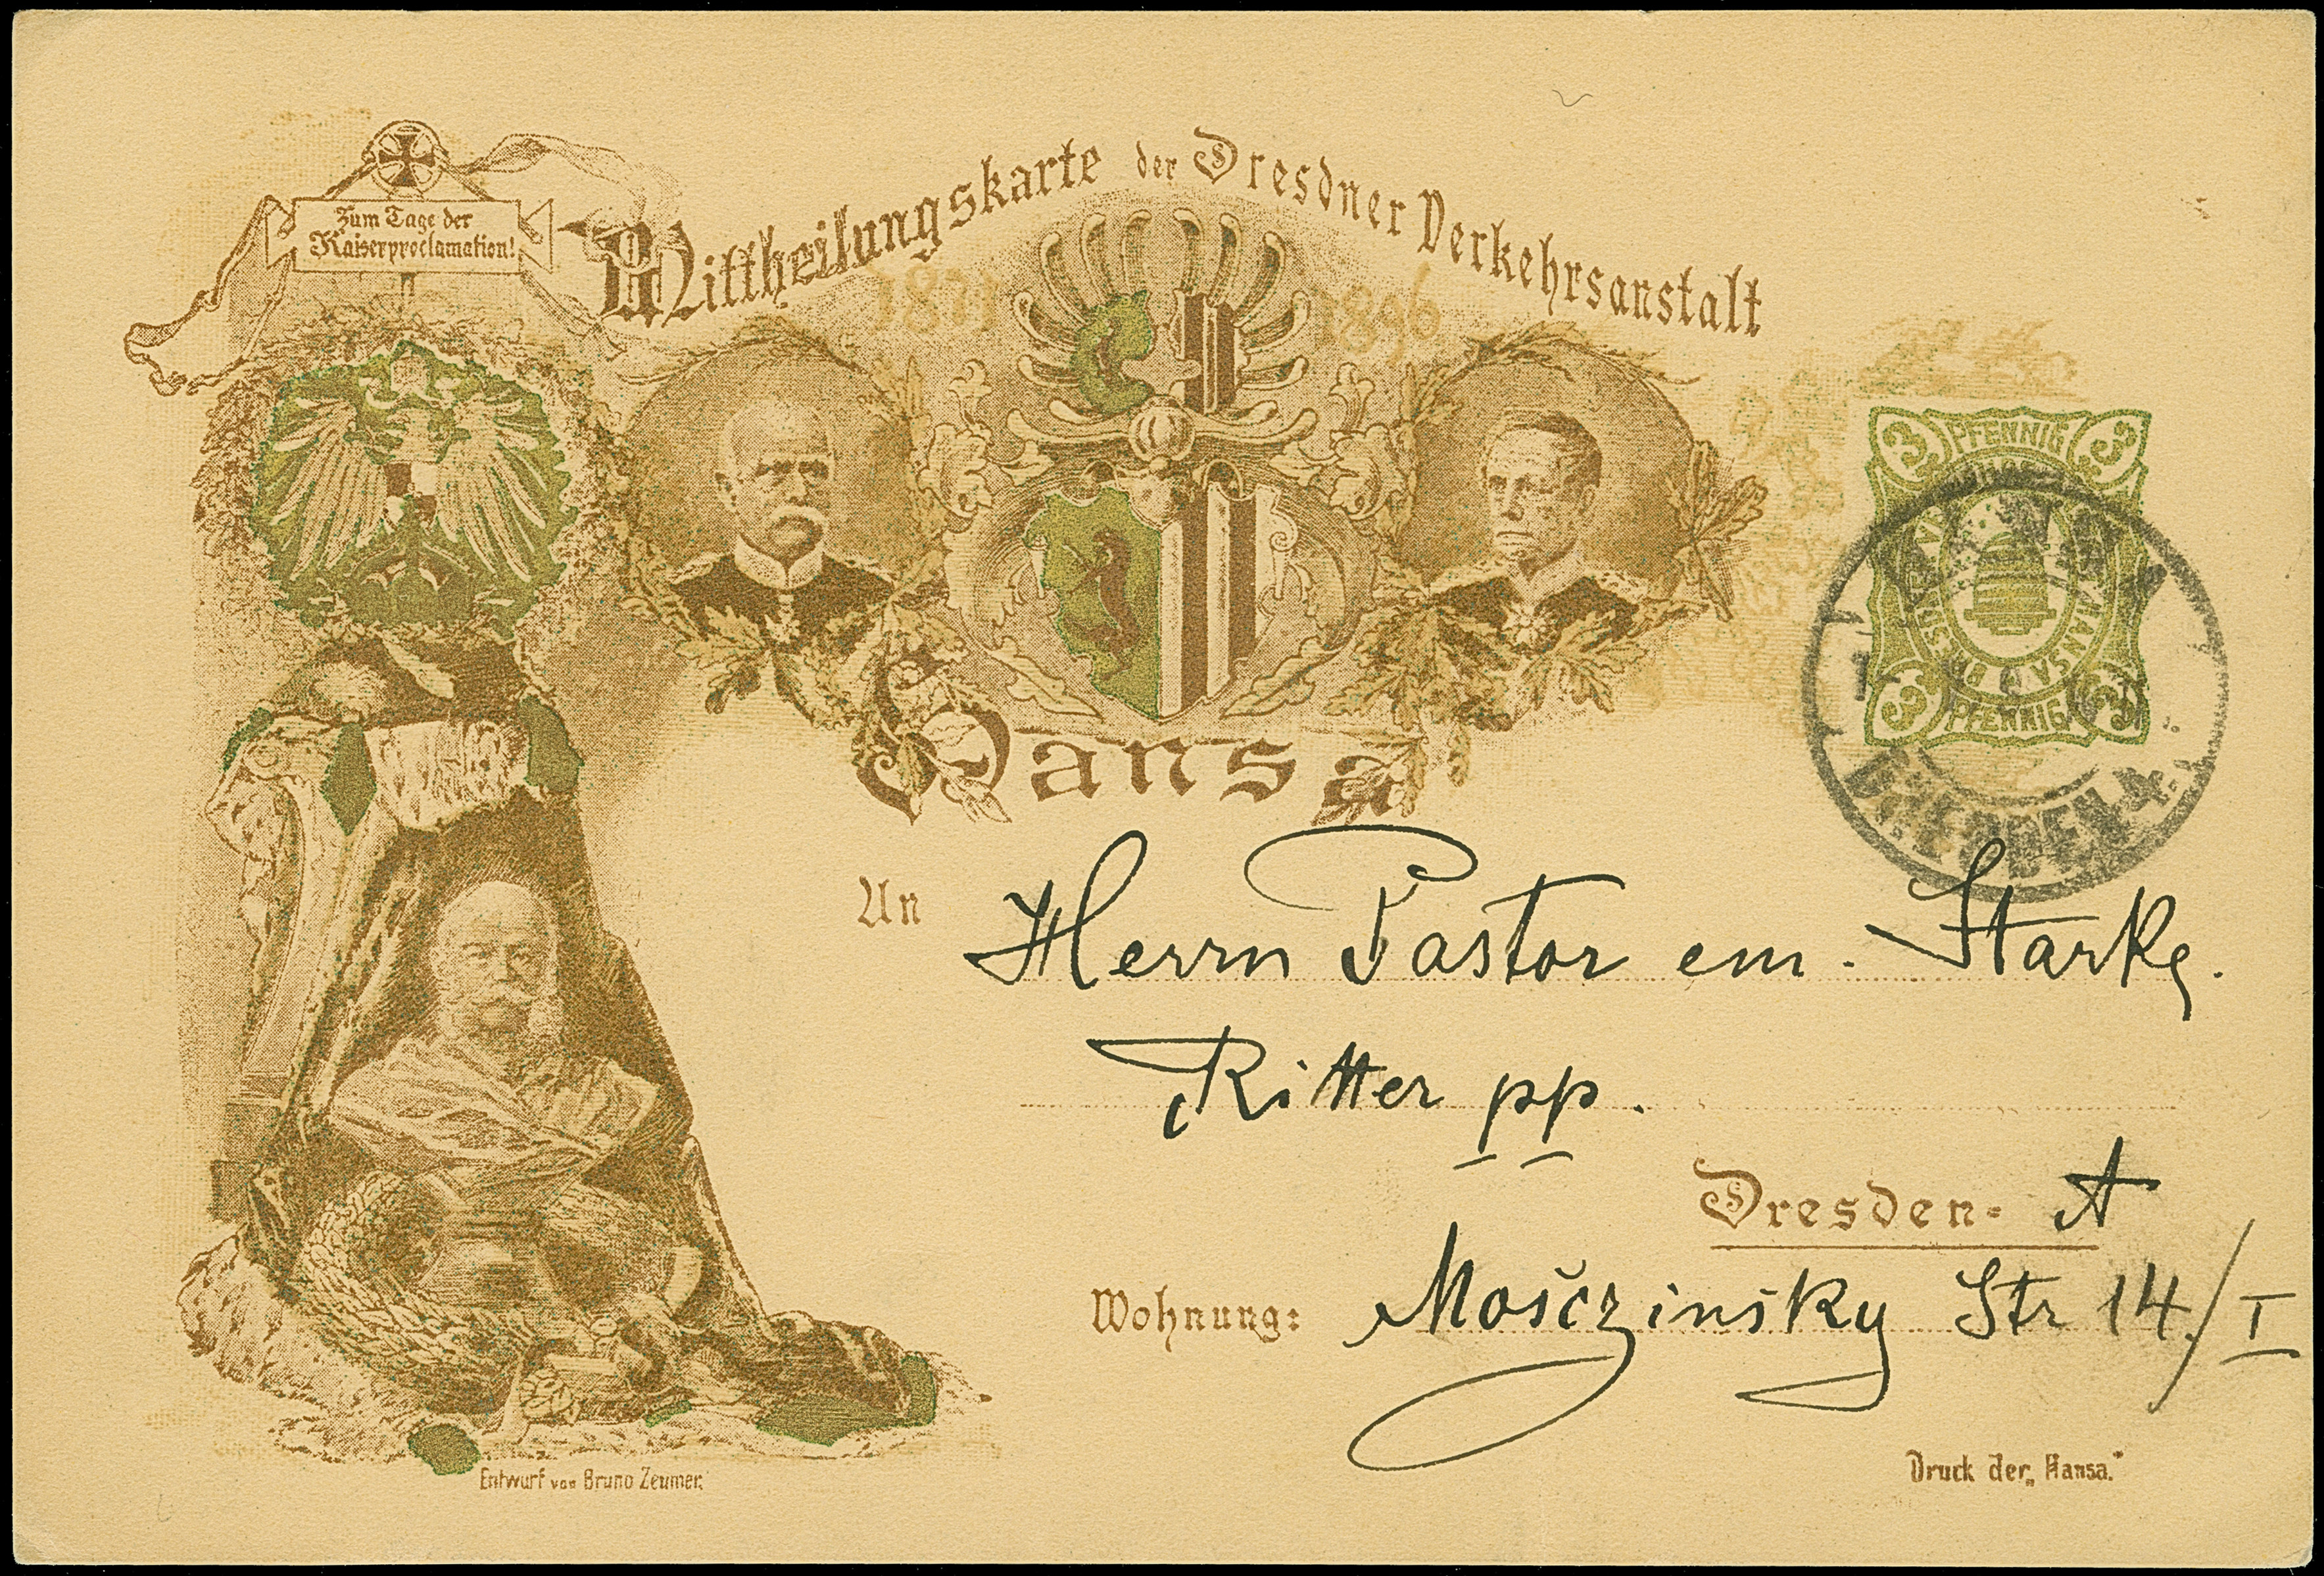 Zum Tage der
Kaiserproclamation!
Mittheilungskarte der Dresdner Verkehrsanstalt
1871 1896
Hansa
3 PFENNIG 3
HANSA
3 PFENNIG 3
DRESDEN 4.
An Herrn Pastor em. Starke.
Ritter pp.
Dresden- A
Wohnung: Mosczinsky Str 14/I
Entwurf von Bruno Zeumer.
Druck der „Hansa.“